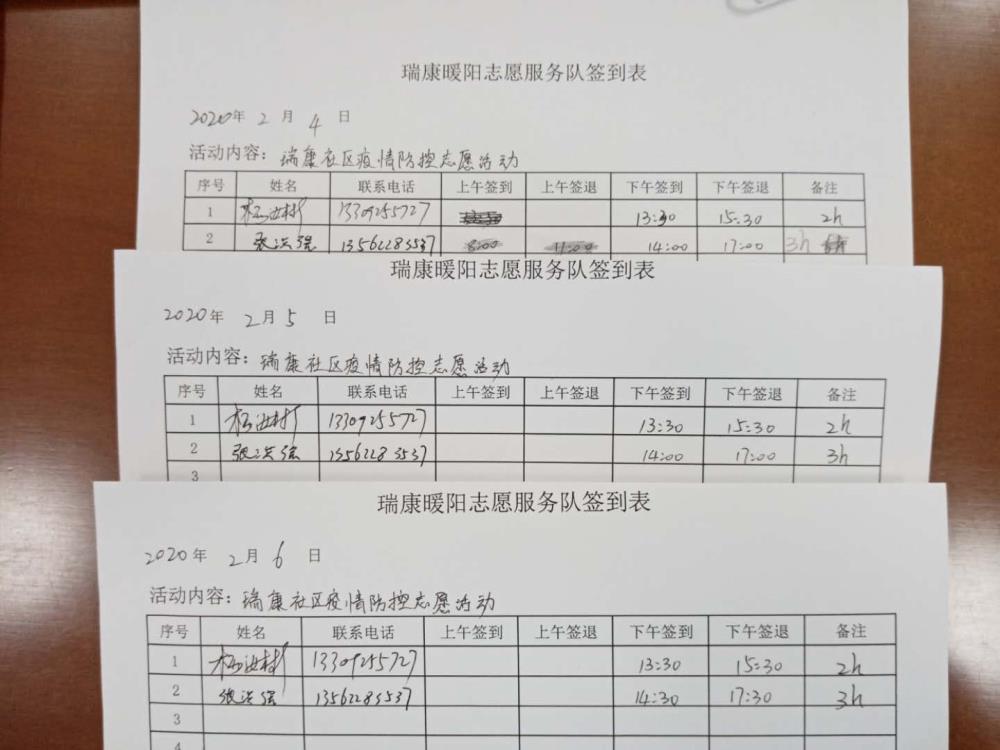 瑞康暖阳志愿服务队签到表
2020年 2 月 4 日
活动内容：瑞康社区疫情防控志愿活动
序号 姓名 联系电话 上午签到 上午签退 下午签到 下午签退 备注
1 13309255727 13:30 15:30 2h
2 张洪强 13562283537 8:00 11:00 14:00 17:00 3h
瑞康暖阳志愿服务队签到表
2020年 2月 5 日
活动内容：瑞康社区疫情防控志愿活动
序号 姓名 联系电话 上午签到 上午签退 下午签到 下午签退 备注
1 13309255727 13:30 15:30 2h
2 张洪强 13562283537 14:00 17:00 3h
3
瑞康暖阳志愿服务队签到表
2020年 2月 6 日
活动内容：瑞康社区疫情防控志愿活动
序号 姓名 联系电话 上午签到 上午签退 下午签到 下午签退 备注
1 13309255727 13:30 15:30 2h
2 张洪强 13562283537 14:30 17:30 3h
3
4